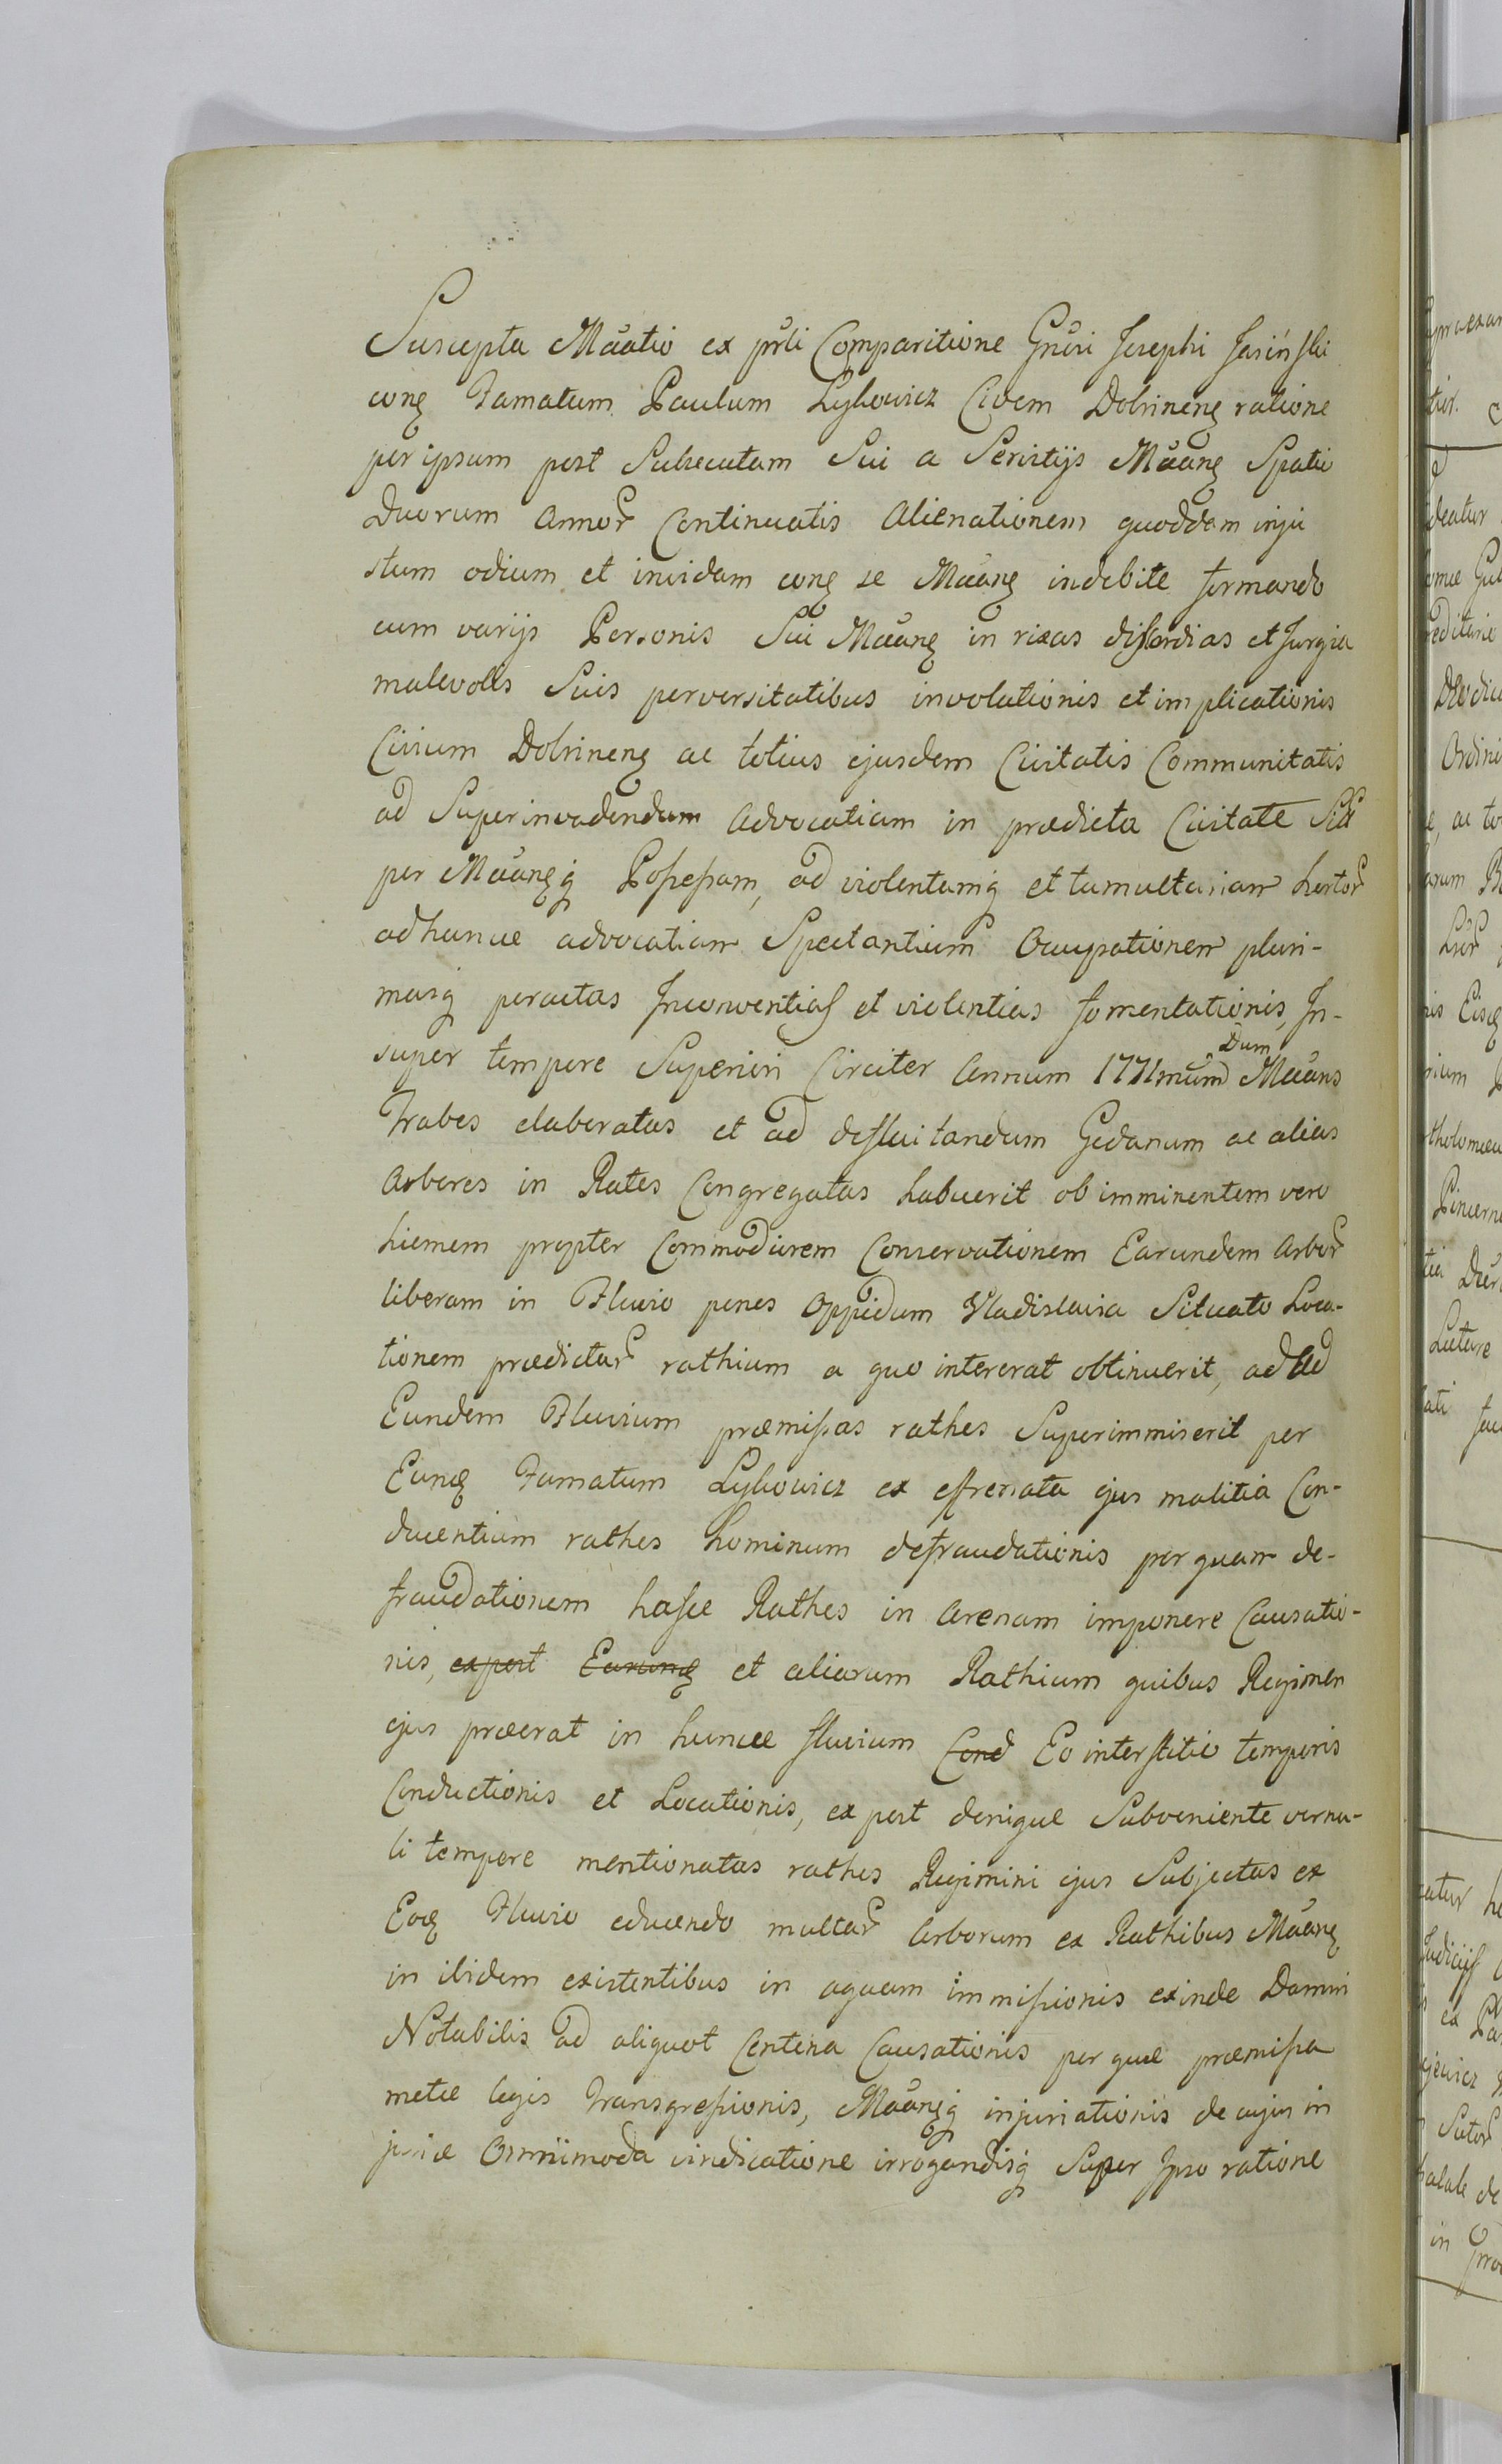 Suscepta Máátio ex prli Comparitione Gnŭri Josephi Jasińſki
cong Famatum Paulum Lykowicz Civem Dobrineng ratione
per ipsum post Subsecutam Sui a Servitijs Máang Spatio
Duorum annor Continuatis Alienationem quoddam inju
stum odium et invidam cong se Máang indebite formando
cum varijs Personis Sui Máang in rixas diſcordias et Jurgia
malevolis Suis perversitatibus involutionis et implicationis
Civium Dobrineng ac totius ejusdem Civitatis Communitatis
ad Superinvadendam Advocatiam in prædicta Civitate
per Máangq Poſseſsam, ad violentamq et tumultariam hortor
adhance advocatiam Spectantium Occupationem pluri-
masq peractas Inconventiaſ et violentias fomentationis, In-
super tempore Superiori Circiter Annum 1771mum Dum Máans
Trabes elaboratas et ad defluitandum Gedanum ac alias
Arbores in Rates Congregatas habuerit ob imminentem vero
hiemem propter Commodiorem Conservationem Earundem Arbor
liberam in Fluvio penes Oppidum Vladislavia Situato Loca-
tionem prædictar rathium a quo intererat obtinuerit, ac ad
Eundem Fluvium præmiſsas rathes Superimmiserit per
Eunq Famatum Lykowicz ex effrenata ejus malitia Con-
ducentium rathes hominum defraudationis per quam de-
fraudationem haſce Rathes in Arenam imponere Causatio-
nis, expost Earunq et aliarum Rathium quibus Regimen
ejus præerat in huncce fluvium Cond Eo interſtitio temporis
Conductionis et Locationis, ex post denique Subveniente verna-
li tempore mentionatas rathes Regimini ejus Subjectas ex
Eoq Fluvio educendo multar Arborum ex Rathibus Máang
in ibidem existentibus in aquam immiſsionis exinde Damni
Notabilis ad aliquot Centena Causationis per quæ præmiſsa
metæ legis transgreſsionis, Máangq injuriationis de cujus in
Omnimoda vindicatione irrogandisq Super Ipso ratione